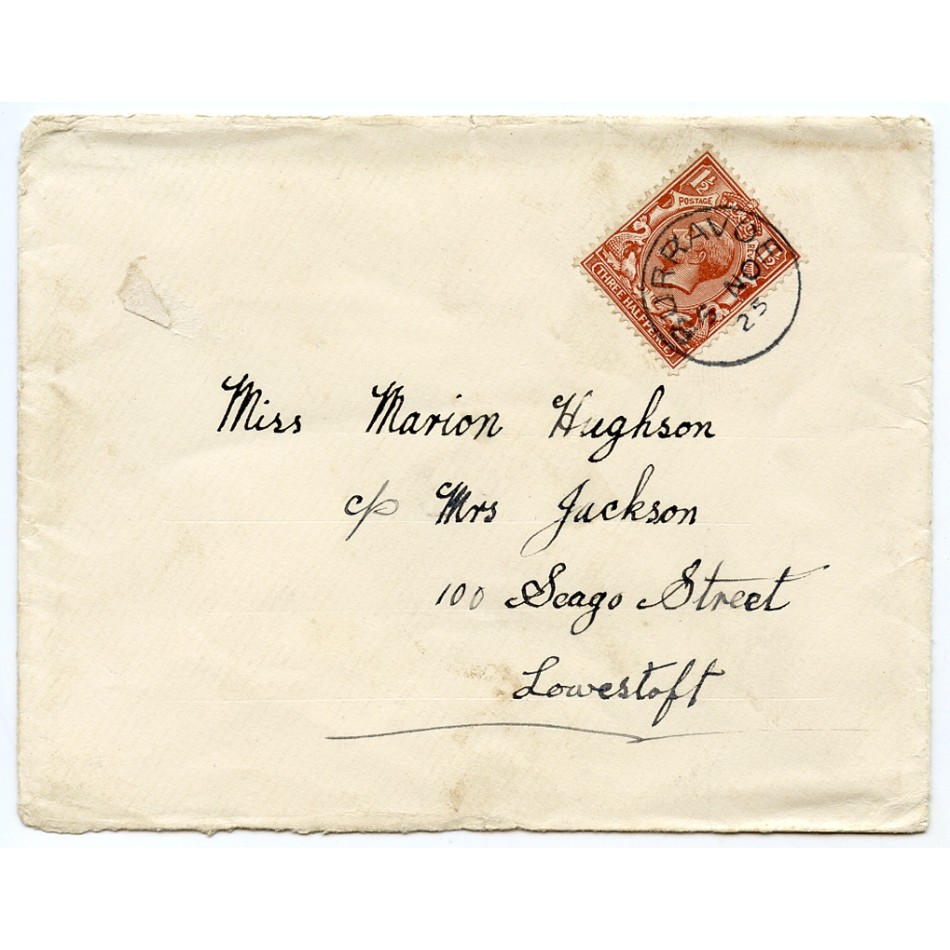 1½ POSTAGE 1½
THREE HALFPENCE
NO
25
Miss Marion Hughson
c/o Mrs Jackson
100 Seago Street
Lowestoft